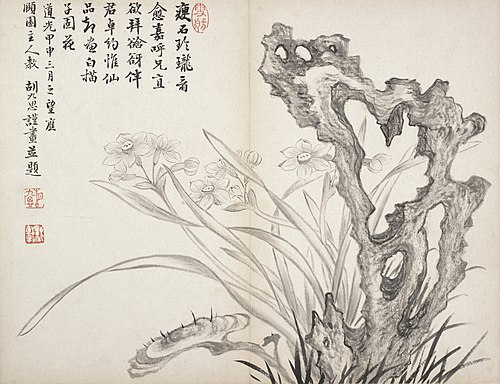 瘦石玲瓏看
愈嘉呼兄宜
欲拜谽谺伴
君卓約惟仙
品却畫白描
子固花
道光甲申三月之望應
頤園主人教 胡九思謹畫並題